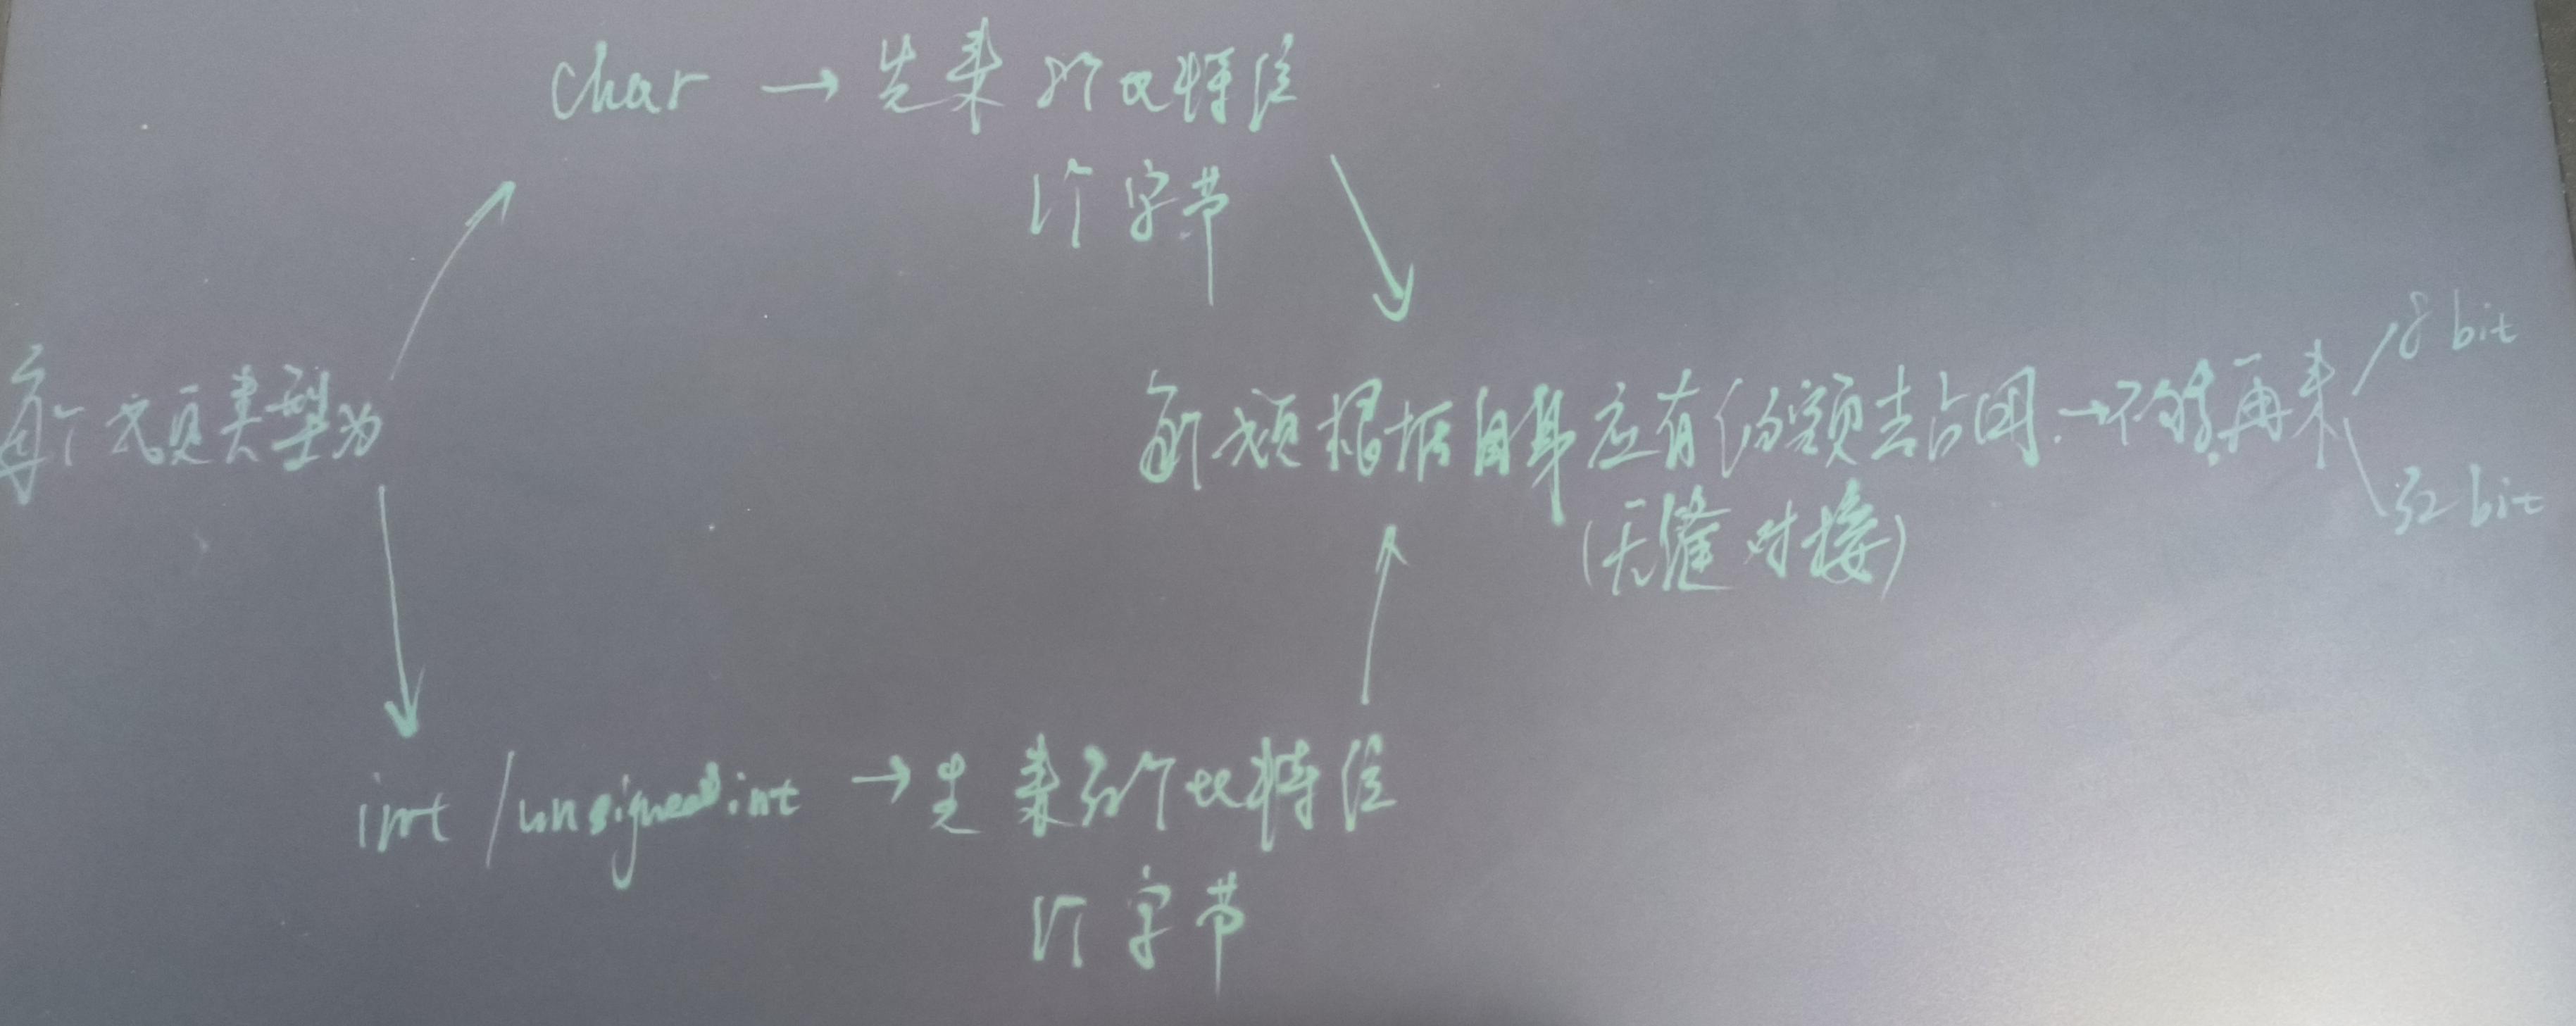 char → 先来8个比特位
1个字节
每个成员类型为
每个成员根据自身应有份额去占用.→不够,再来
8 bit
32 bit
(无缝对接)
int / unsigned int → 先来32个比特位
1个字节